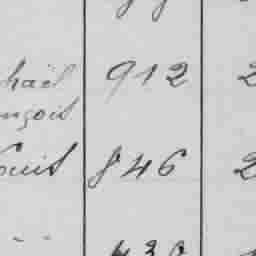 haël 912 2
nçois
ouis 846 2
430